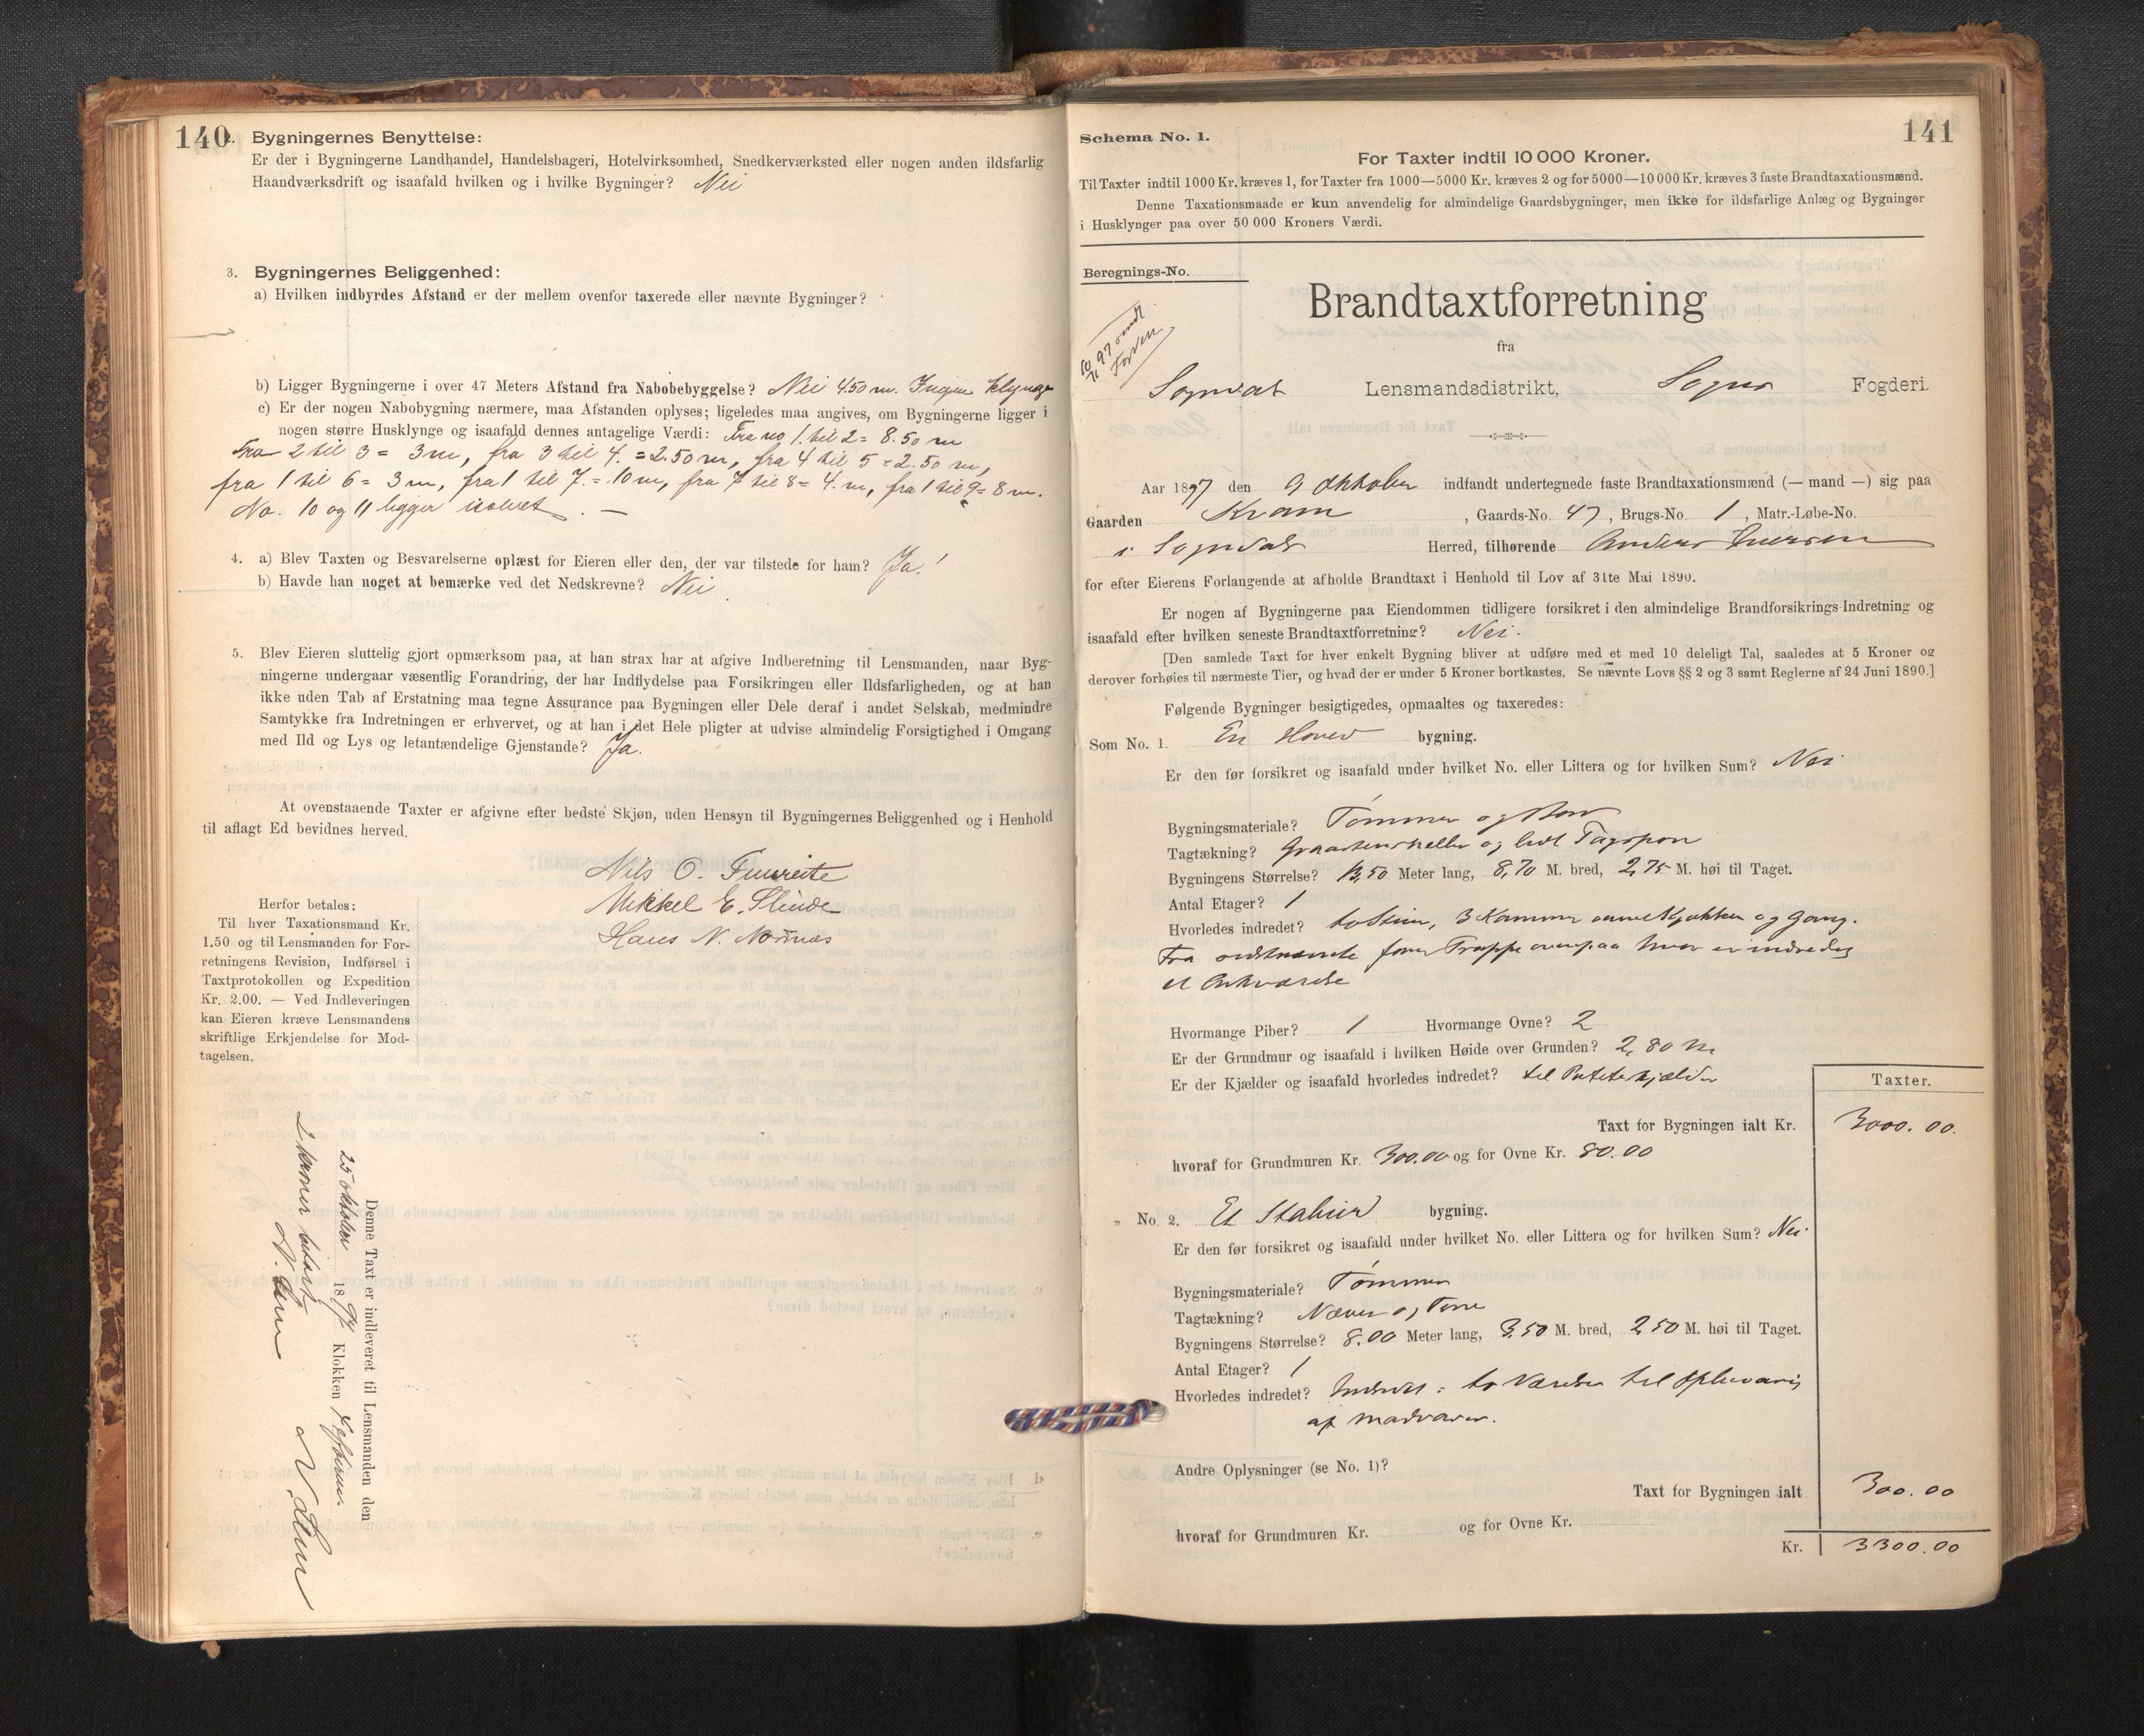 140
2. Bygningernes Benyttelse:
Er der i Bygningerne Landhandel, Handelsbageri, Hotelvirksomhed, Snedkerværksted eller nogen anden ildsfarlig
Haandværksdrift og isaafald hvilken og i hvilke Bygninger? Nei
3. Bygningernes Beliggenhed:
a) Hvilken indbyrdes Afstand er der mellem ovenfor taxerede eller nævnte Bygninger?
b) Ligger Bygningerne i over 47 Meters Afstand fra Nabobebyggelse? Nei 450 m. Ingen klynge
c) Er der nogen Nabobygning nærmere, maa Afstanden oplyses; ligeledes maa angives, om Bygningerne ligger i
nogen større Husklynge og isaafald dennes antagelige Værdi: Fra no 1. til 2 = 8.50 m
Fra 2 til 3 = 3 m, fra 3 til 4. = 2.50 m, fra 4 til 5 = 2.50 m,
fra 1 til 6 = 3 m, fra 1 til 7. = 10 m, fra 7 til 8 = 4. m, fra 1 til 9 = 8 m.
No. 10 og 11 ligger isoleret. —
4. a) Blev Taxten og Besvarelserne oplæst for Eieren eller den, der var tilstede for ham? Ja!
b) Havde han noget at bemærke ved det Nedskrevne? Nei
5. Blev Eieren sluttelig gjort opmærksom paa, at han strax har at afgive Indberetning til Lensmanden, naar Byg-
ningerne undergaar væsentlig Forandring, der har Indflydelse paa Forsikringen eller Ildsfarligheden, og at han
ikke uden Tab af Erstatning maa tegne Assurance paa Bygningen eller Dele deraf i andet Selskab, medmindre
Samtykke fra Indretningen er erhvervet, og at han i det Hele pligter at udvise almindelig Forsigtighed i Omgang
med Ild og Lys og letantændelige Gjenstande? Ja.
At ovenstaaende Taxter er afgivne efter bedste Skjøn, uden Hensyn til Bygningernes Beliggenhed og i Henhold
til aflagt Ed bevidnes herved.
Nils O. Fuureite
Mikkel E. Slinde
Hans N. Nornæs
Herfor betales:
Til hver Taxationsmand Kr.
1.50 og til Lensmanden for For-
retningens Revision, Indførsel i
Taxtprotokollen og Expedition
Kr. 2.00. — Ved Indleveringen
kan Eieren kræve Lensmandens
skriftlige Erkjendelse for Mod-
tagelsen.
Denne Taxt er indleveret til Lensmanden den
25 oktober 1897 Klokken
2 kroner betalt
141
Schema No. 1.
For Taxter indtil 10 000 Kroner.
Til Taxter indtil 1000 Kr. kræves 1, for Taxter fra 1000—5000 Kr. kræves 2 og for 5000—10 000 Kr. kræves 3 faste Brandtaxationsmænd.
Denne Taxationsmaade er kun anvendelig for almindelige Gaardsbygninger, men ikke for ildsfarlige Anlæg og Bygninger
i Husklynger paa over 50 000 Kroners Værdi.
Beregnings-No.
Brandtaxtforretning
fra
Sogndal Lensmandsdistrikt, Sogns Fogderi.
Aar 1897 den 9 Oktober indfandt undertegnede faste Brandtaxationsmænd (— mand —) sig paa
Gaarden Kvam, Gaards-No. 47, Brugs-No. 1, Matr.-Løbe-No.
i Sogndal Herred, tilhørende Anders Iversen
for efter Eierens Forlangende at afholde Brandtaxt i Henhold til Lov af 31te Mai 1890.
Er nogen af Bygningerne paa Eiendommen tidligere forsikret i den almindelige Brandforsikrings-Indretning og
isaafald efter hvilken seneste Brandtaxtforretning? Nei.
[Den samlede Taxt for hver enkelt Bygning bliver at udføre med et med 10 deleligt Tal, saaledes at 5 Kroner og
derover forhøies til nærmeste Tier, og hvad der er under 5 Kroner bortkastes. Se nævnte Lovs §§ 2 og 3 samt Reglerne af 24 Juni 1890.]
Følgende Bygninger besigtigedes, opmaaltes og taxeredes:
Som No. 1. En Hoved bygning.
Er den før forsikret og isaafald under hvilket No. eller Littera og for hvilken Sum? Nei
Bygningsmateriale? Tømmer og Bor
Tagtækning? Graastensheller og lidt Tagspon
Bygningens Størrelse? 13,50 Meter lang, 8,70 M. bred, 2,75 M. høi til Taget.
Antal Etager? 1
Hvorledes indredet? to Stuer, 3 Kammer samt Kjøkken og Gang.
Fra sidstnævnte fører Trappe ovenpaa hvor er indredet
et Værelse
Hvormange Piber? 1 Hvormange Ovne? 2
Er der Grundmur og isaafald i hvilken Høide over Grunden? 2,80 m
Er der Kjælder og isaafald hvorledes indredet? til Potetkjælder
Taxter.
Taxt for Bygningen ialt Kr. 3000.00.
hvoraf for Grundmuren Kr. 300.00 og for Ovne Kr. 80.00
„ No. 2. Et Stabur bygning.
Er den før forsikret og isaafald under hvilket No. eller Littera og for hvilken Sum? Nei
Bygningsmateriale? Tømmer
Tagtækning? Næver og Torv
Bygningens Størrelse? 8.00 Meter lang, 3.50 M. bred, 2,50 M. høi til Taget.
Antal Etager? 1
Hvorledes indredet? Indredet: to Værelser til Opbevaring
af Madvarer.
Andre Oplysninger (se No. 1)?
Taxt for Bygningen ialt 300.00
hvoraf for Grundmuren Kr. og for Ovne Kr.
Kr. 3300.00